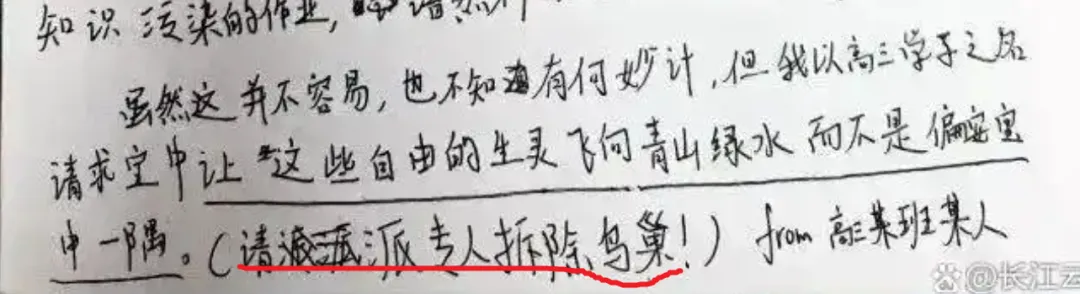 知识污染的作业,
虽然这并不容易,也不知道有何妙计,但我以高三学子之名
请求宜中让这些自由的生灵飞向青山绿水而不是偏安宜
中一隅。(请派专人拆除鸟巢!) from 高三某班某人
@长江云